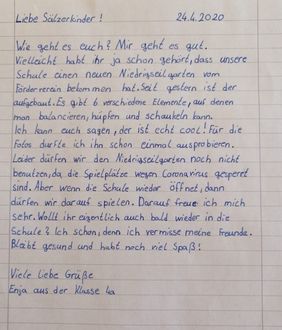 Liebe Sälzerkinder! 24.4.2020
Wie geht es euch? Mir geht es gut.
Vielleicht habt ihr ja schon gehört, dass unsere
Schule einen neuen Niedrigseilgarten vom
Förderverein bekommen hat. Seit gestern ist der
aufgebaut. Es gibt 6 verschiedene Elemente, auf denen
man balancieren, hüpfen und schaukeln kann.
Ich kann euch sagen, der ist echt cool! Für die
Fotos durfte ich ihn schon einmal ausprobieren.
Leider dürfen wir den Niedrigseilgarten noch nicht
benutzen, da die Spielplätze wegen Coronavirus gesperrt
sind. Aber wenn die Schule wieder öffnet, dann
dürfen wir darauf spielen. Darauf freue ich mich
sehr. Wollt ihr eigentlich auch bald wieder in die
Schule? Ich schon, denn ich vermisse meine Freunde.
Bleibt gesund und habt noch viel Spaß!
Viele liebe Grüße
Enja aus der Klasse 4a